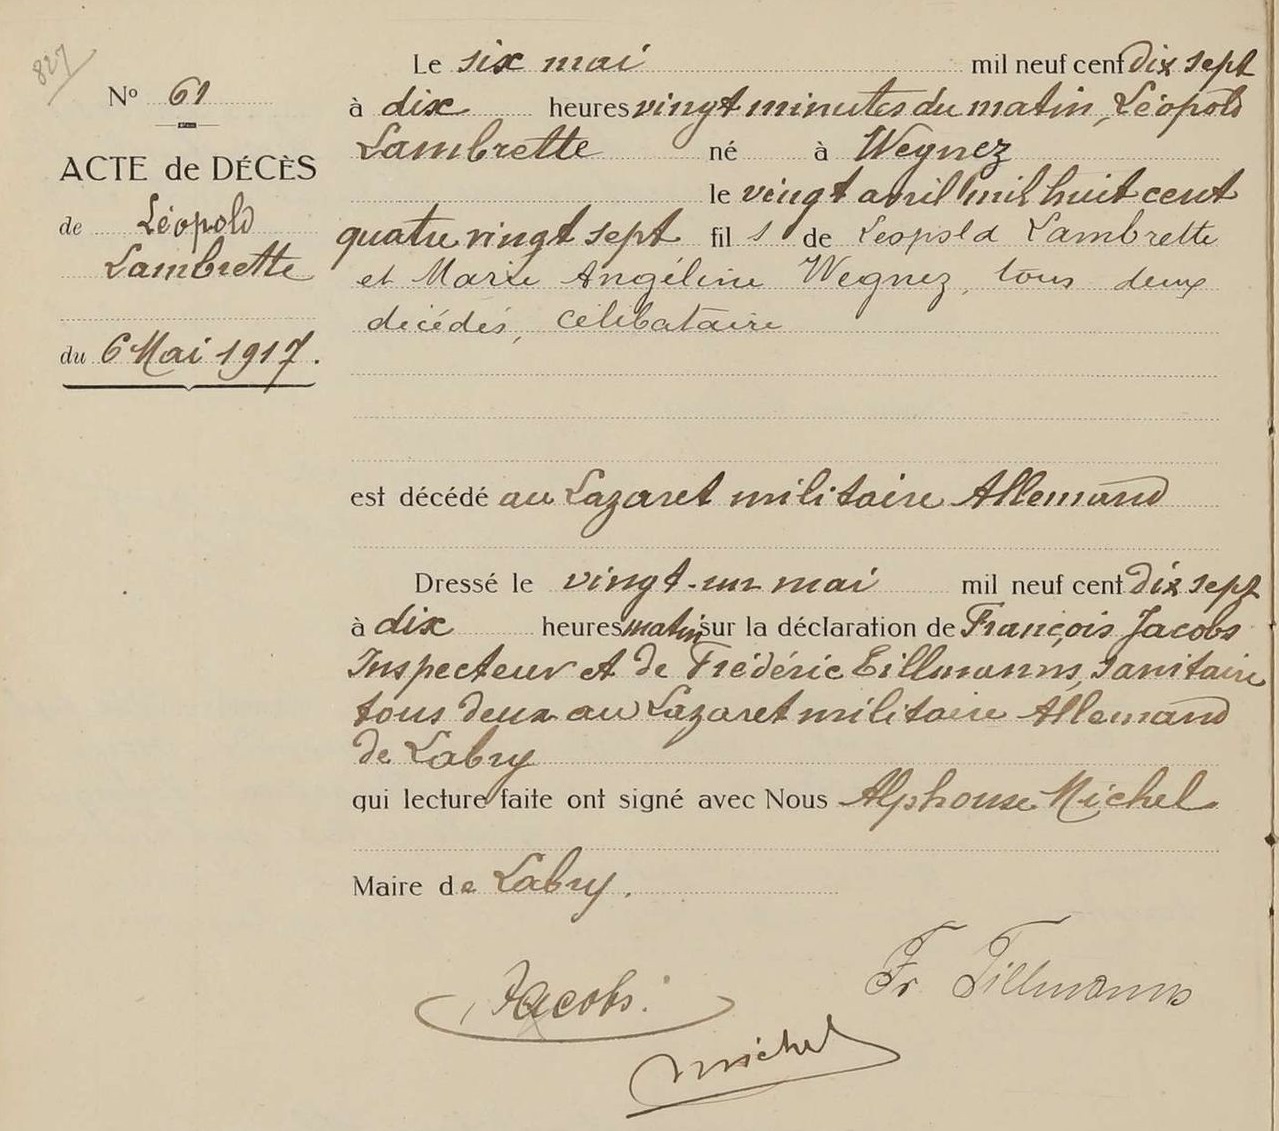 827
Nº 61
ACTE de DÉCÈS
de Léopold
Lambrette
du 6 Mai 1917.
Le six mai mil neuf cent dix sept
à dix heures vingt minutes du matin, Léopold
Lambrette né à Wegnez
le vingt avril mil huit cent
quatre vingt sept fils de Léopold Lambrette
et Marie Angéline Wegnez, tous deux
décédés, célibataire
est décédé au Lazaret militaire Allemand
Dressé le vingt-un mai mil neuf cent dix sept
à dix heures matin sur la déclaration de François Jacobs
Inspecteur et de Frédéric Tillmanns, sanitaire
tous deux au Lazaret militaire Allemand
de Labry
qui lecture faite ont signé avec Nous Alphonse Michel
Maire de Labry.
Jacobs.
Fr Tillmanns
Michel